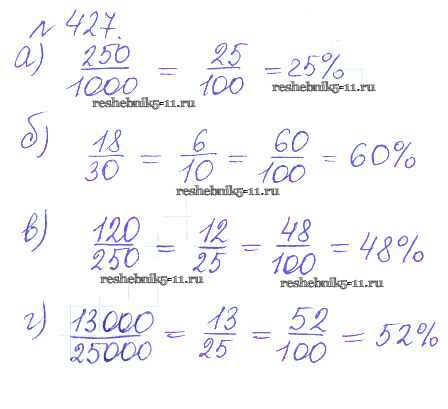 № 427.
а) 250/1000 = 25/100 = 25%
reshebnik5-11.ru reshebnik5-11.ru
б) 18/30 = 6/10 = 60/100 = 60%
reshebnik5-11.ru
в) 120/250 = 12/25 = 48/100 = 48%
reshebnik5-11.ru reshebnik5-11.ru
г) 13000/25000 = 13/25 = 52/100 = 52%